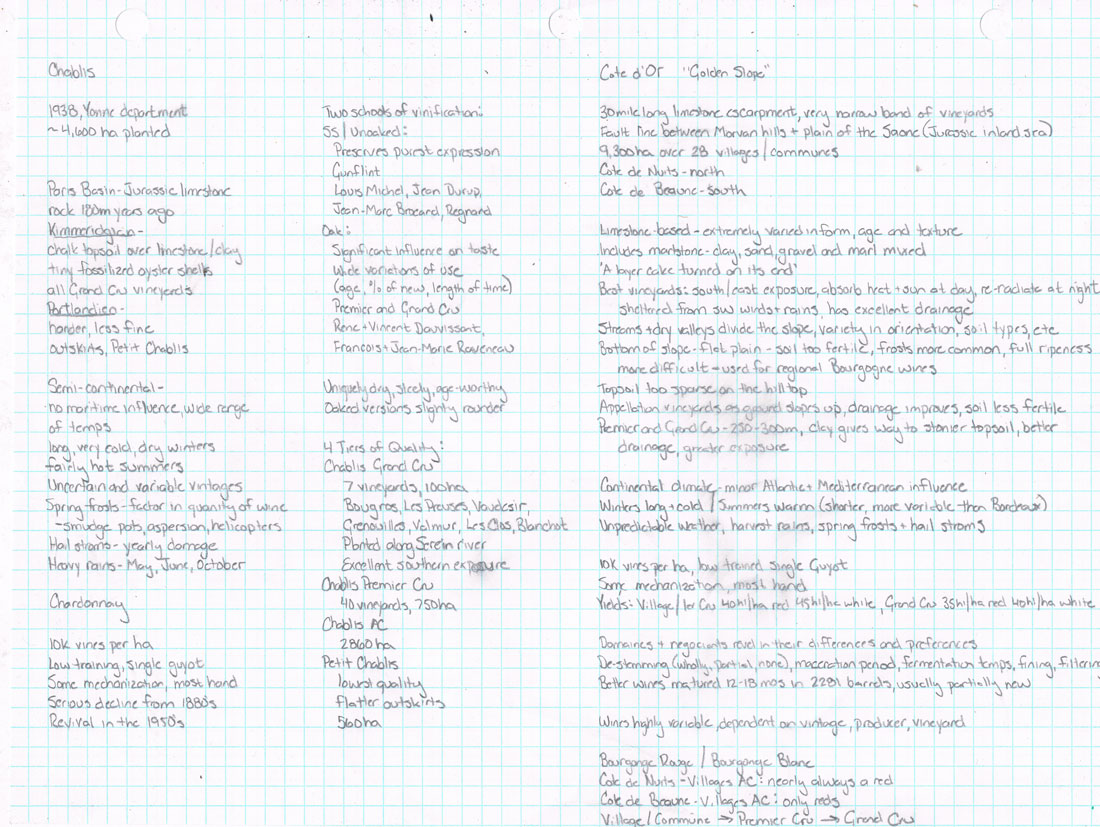 Chablis
1938, Yonne department
~ 4,600 ha planted
Paris Basin - Jurassic limestone
rock 180m years ago
Kimmeridgian -
chalk topsoil over limestone/clay
tiny fossilized oyster shells
all Grand Cru vineyards
Portlandien -
harder, less fine
outskirts, Petit Chablis
Semi-continental -
no maritime influence, wide range
of temps
long, very cold, dry winters
fairly hot summers
Uncertain and variable vintages
Spring frosts - factor in quanity of wine
- smudge pots, aspersion, helicopters
Hail stroms - yearly damage
Heavy rains - May, June, October
Chardonnay
10K vines per ha
Low training, single guyot
Some mechanization, most hand
Serious decline from 1880's
Revival in the 1950's
Two schools of vinification:
SS / Unoaked:
Preserves purest expression
Gunflint
Louis Michel, Jean Durup,
Jean-Marc Brocard, Regnard
Oak:
Significant influence on taste
Wide variations of use
(age, % of new, length of time)
Premier and Grand Cru
Rene + Vincent Dauvissant,
Francois + Jean-Marie Raveneau
Uniquely dry, steely, age-worthy
Oaked versions slighty rounder
4 Tiers of Quality:
Chablis Grand Cru
7 vineyards, 100ha
Bougros, Les Preuses, Vaudesir,
Grenouilles, Valmur, Les Clos, Blanchot
Planted along Serein river
Excellent southern exposure
Chablis Premier Cru
40 vineyards, 750ha
Chablis AC
2860 ha
Petit Chablis
lowest quality
flatter outskirts
560 ha
Cote d'Or "Golden Slope"
30 mile long limestone escarpment, very narrow band of vineyards
Fault line between Morvan hills + plain of the Saone (Jurassic inland sea)
9,300 ha over 28 villages/communes
Cote de Nuits - north
Cote de Beaune - south
Limestone-based - extremely varied in form, age and texture
Includes marlstone - clay, sand, gravel and marl mixed
"A layer cake turned on its end"
Best vineyards: south/east exposure, absorb heat + sun at day, re-radiate at night
sheltered from sws winds + rains, has excellent drainage
Streams + dry valleys divide the slope, variety in orientation, soil types, etc
Bottom of slope - flat plain - soil too fertile, frosts more common, full ripeness
more difficult - used for regional Bourgogne wines
Topsoil too sparse on the hilltop
Appellation vineyards as ground slopes up, drainage improves, soil less fertile
Premier and Grand Cru - 250-300m, clay gives way to stonier topsoil, better
drainage, greater exposure
Continental climate - minor Atlantic + Mediterranean influence
Winters long + cold / Summers warm (shorter, more variable than Bordeaux)
Unpredictable whether, harvest rains, spring frosts + hail stroms
10K vines per ha, low trained single Guyot
Some mechanization, most hand
Yields: Village/1er Cru 40hl/ha red 45hl/ha white, Grand Cru 35hl/ha red 40hl/ha white
Domaines + negociants revel in their differences and preferences
De-stemming (wholly, partial, none), maceration period, fermentation temps, fining, filtering
Better wines matured 12-18 mos in 228l barrels, usually partially new
Wines highly variable, dependent on vintage, producer, vineyard
Bourgonge Rouge / Bourgonge Blanc
Cote de Nuits - Villages AC: nearly always a red
Cote de Beaune - Villages AC: only reds
Village/Commune → Premier Cru → Grand Cru